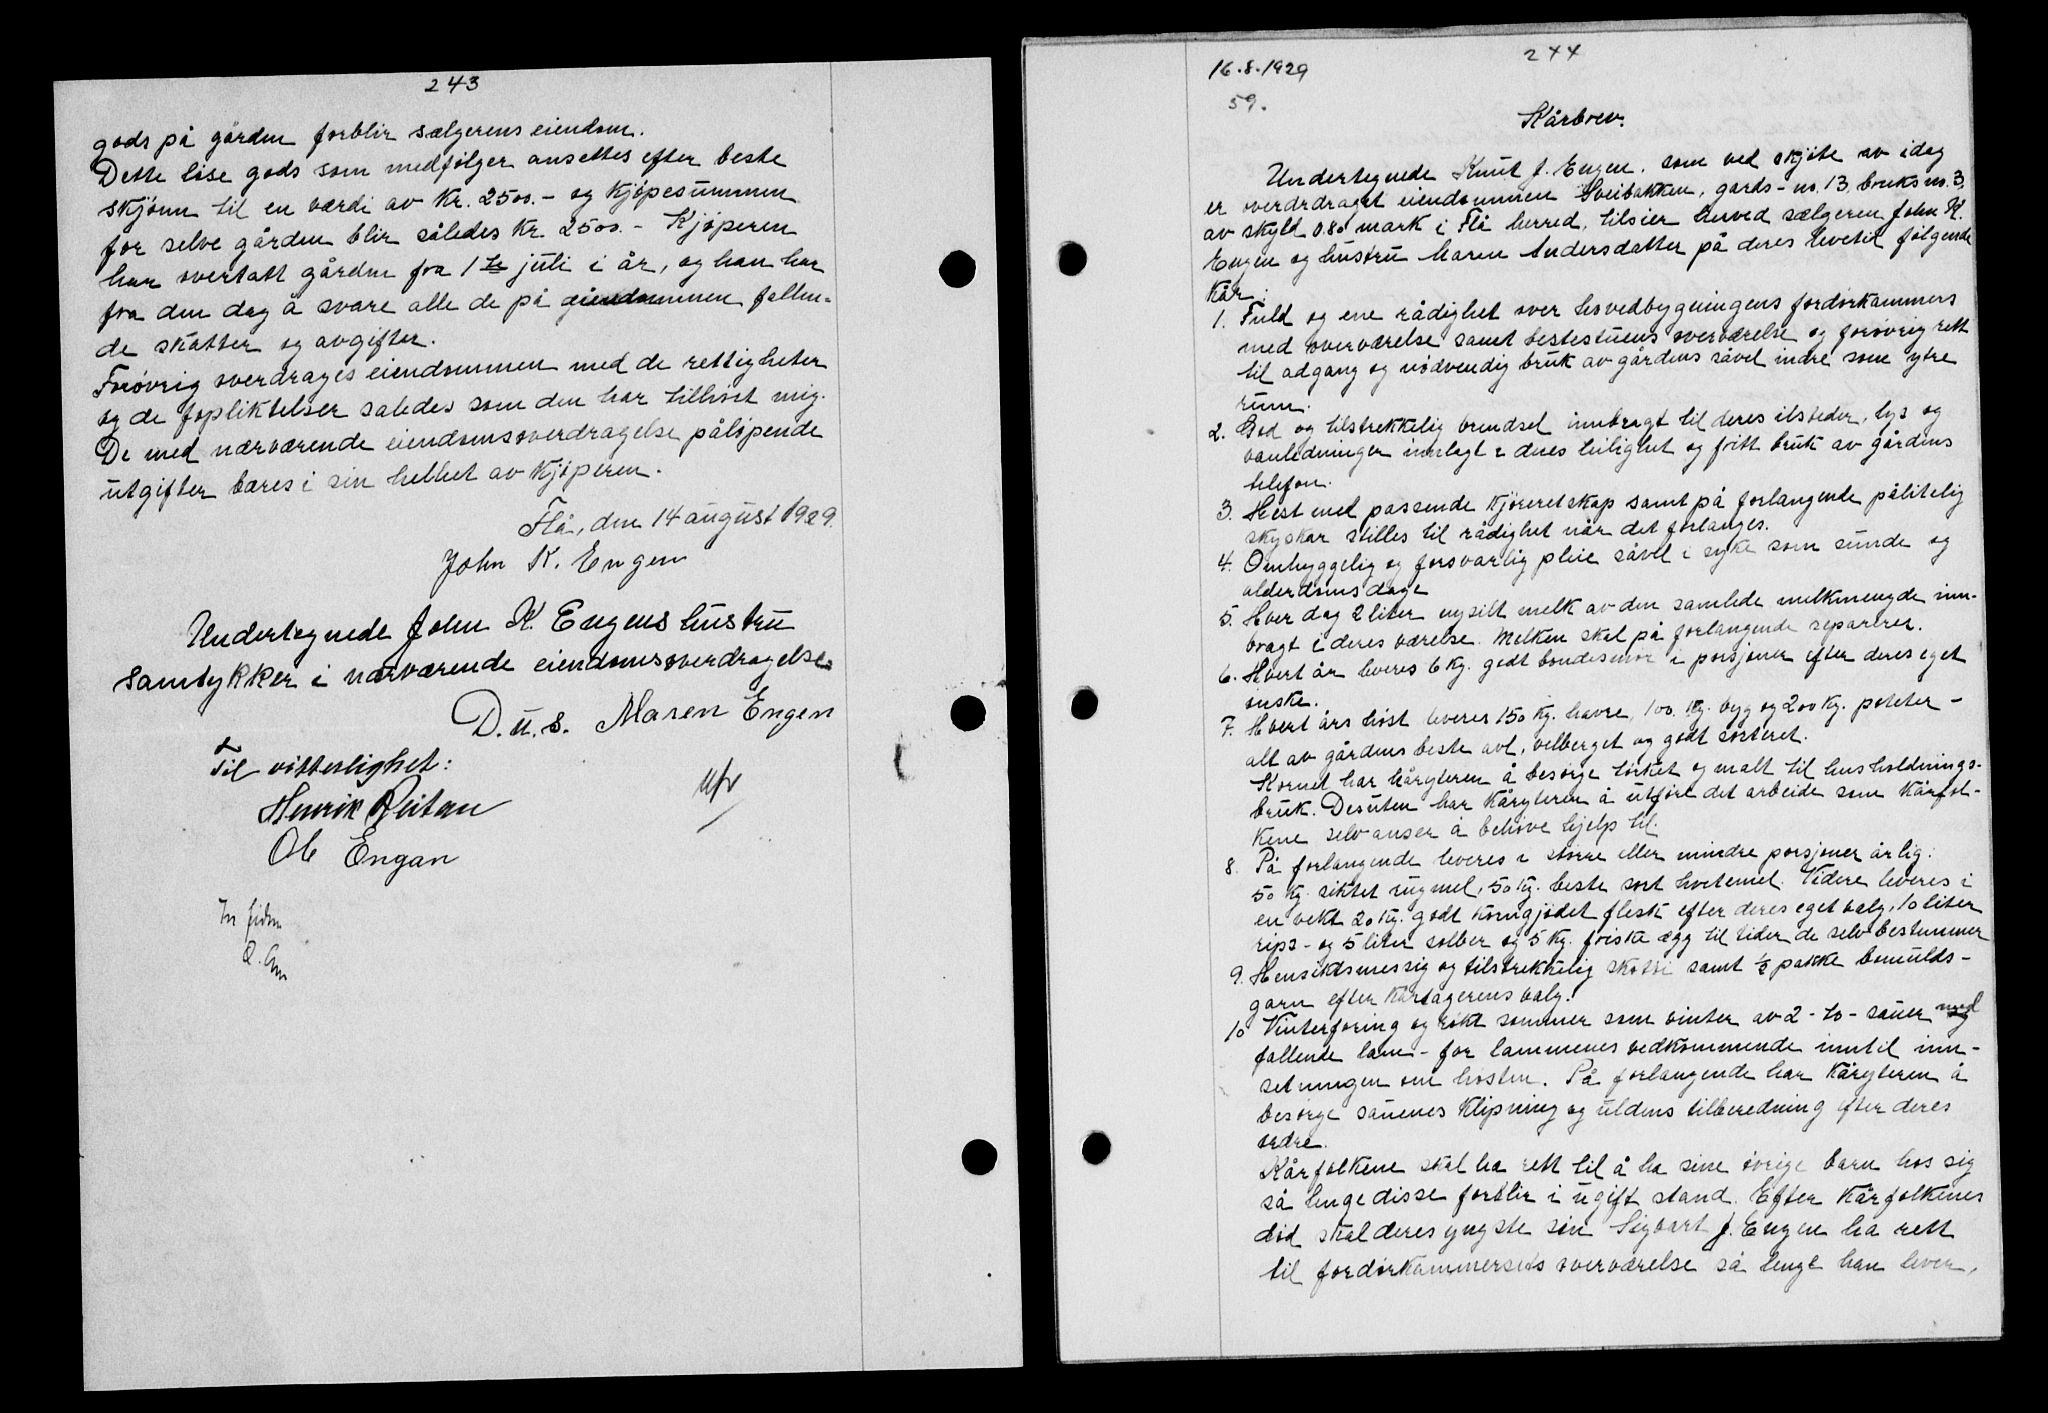 243
gods på gården forblir sælgerens eiendom.
Dette løse gods som medfølger ansettes efter beste
skjønn til en værdi av Kr. 2500.- og kjøpesummen
for selve gården blir således Kr. 2500.- Kjøperen
har overtatt gården fra 1ste juli i år, og han har
fra den dag å svare alle de på eiendommen fallen-
de skatter og avgifter.
Forøvrig overdrages eiendommen med de rettigheter
og de fopliktelser således som den har tilhørt mig.
De med nærværende eiendomsoverdragelse påløpende
utgifter bæres i sin helhet av kjøperen.
Flå, den 14 august 1929.
John K. Engen
Undertegnede John K. Engens hustru
samtykker i nærværende eiendomsoverdragelse
D.u.s. Maren Engen
Til vitterlighet:
Henrik Reitan
Ole Engan
244
16.8.1929
59.
Kårbrev.
Undertegnede Knut J. Engen, som ved skjøte av idag
er overdraget eiendommen Sveibakken, gards-no. 13, bruks no. 3,
av skyld 0.80 mark i Flå herred, tilsier herved sælgeren John K.
Engen og hustru Maren Andersdatter på deres livetid følgende
Kår:
1. Fuld og ene rådighet over hovedbygningens fordørkammers
med overværelse samt bestestuens overværelse og forøvrig rett
til adgang og nødvendig bruk av gårdens såvel indre som ytre
rum.
2. God og tilstrekkelig brendsel innbragt til deres ilsteder, lys og
vanledninger innlagt i deres leilighet og fritt bruk av gårdens
telefon.
3. Hest med passende kjøreretskap samt på forlangende pålitelig
skyskar stilles til rådighet når det forlanges.
4. Omhyggelig og forsvarlig pleie såvel i syke som sunde og
alderdoms dage
5. Hver dag 2 liter nysilt melk av den samlede melkmengde inn-
bragt i deres værelse. Melken skal på forlangende separeres.
6. Hvert år leveres 6 kg. godt bondesmør i porsjoner efter deres eget
ønske.
7. Hvert års høst leveres 150 kg. havre, 100 kg. byg og 200 kg. poteter -
alt av gårdens beste avl, velberget og godt sorteret.
Kornet har kårgiveren å besørge tørket og malt til husholdnings-
bruk. Desuten har kårgiveren å utføre det arbeide som kårfol-
kene selv anser å behøve hjelp til.
8. På forlangende leveres i større eller mindre porsjoner årlig:
50 kg. siktet rugmel, 50 kg. beste sort hvetemel. Videre leveres i
en vekt 20 kg. godt korngjødet flesk efter deres eget valg, 10 liter
rips- og 5 liter solber og 5 kg. friske egg til tider de selv bestemmer
9. Hensiktsmessig og tilstrekkelig skotøi samt ½ pakke bomulds-
garn efter kårtagerens valg.
10 Vinterforing og røkt sommer som vinter av 2 - to - sauer med
fallende lam - for lammenes vedkommende inntil inn-
setningen om høsten. På forlangende har kårgiveren å
besørge sauenes klipning og uldens tilberedning efter deres
ordre.
Kårfolkene skal ha rett til å ha sine øvrige barn hos sig
så lenge disse forblir i ugift stand. Efter Kårfolkenes
død skal deres yngste søn Sigvart J. Engen ha rett
til fordørkammersets overværelse så lenge han lever,